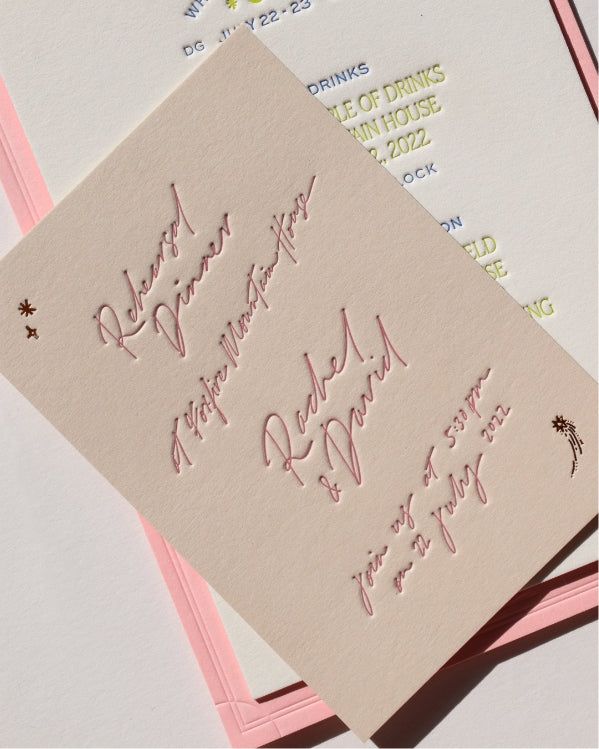 DG JULY 22-23
DRINKS
OF DRINKS
HOUSE
2022
Rehearsal
Dinner
at Foxfire Mountain House
Rachel
& David
join us at 5:30 pm
on 22 July 2022